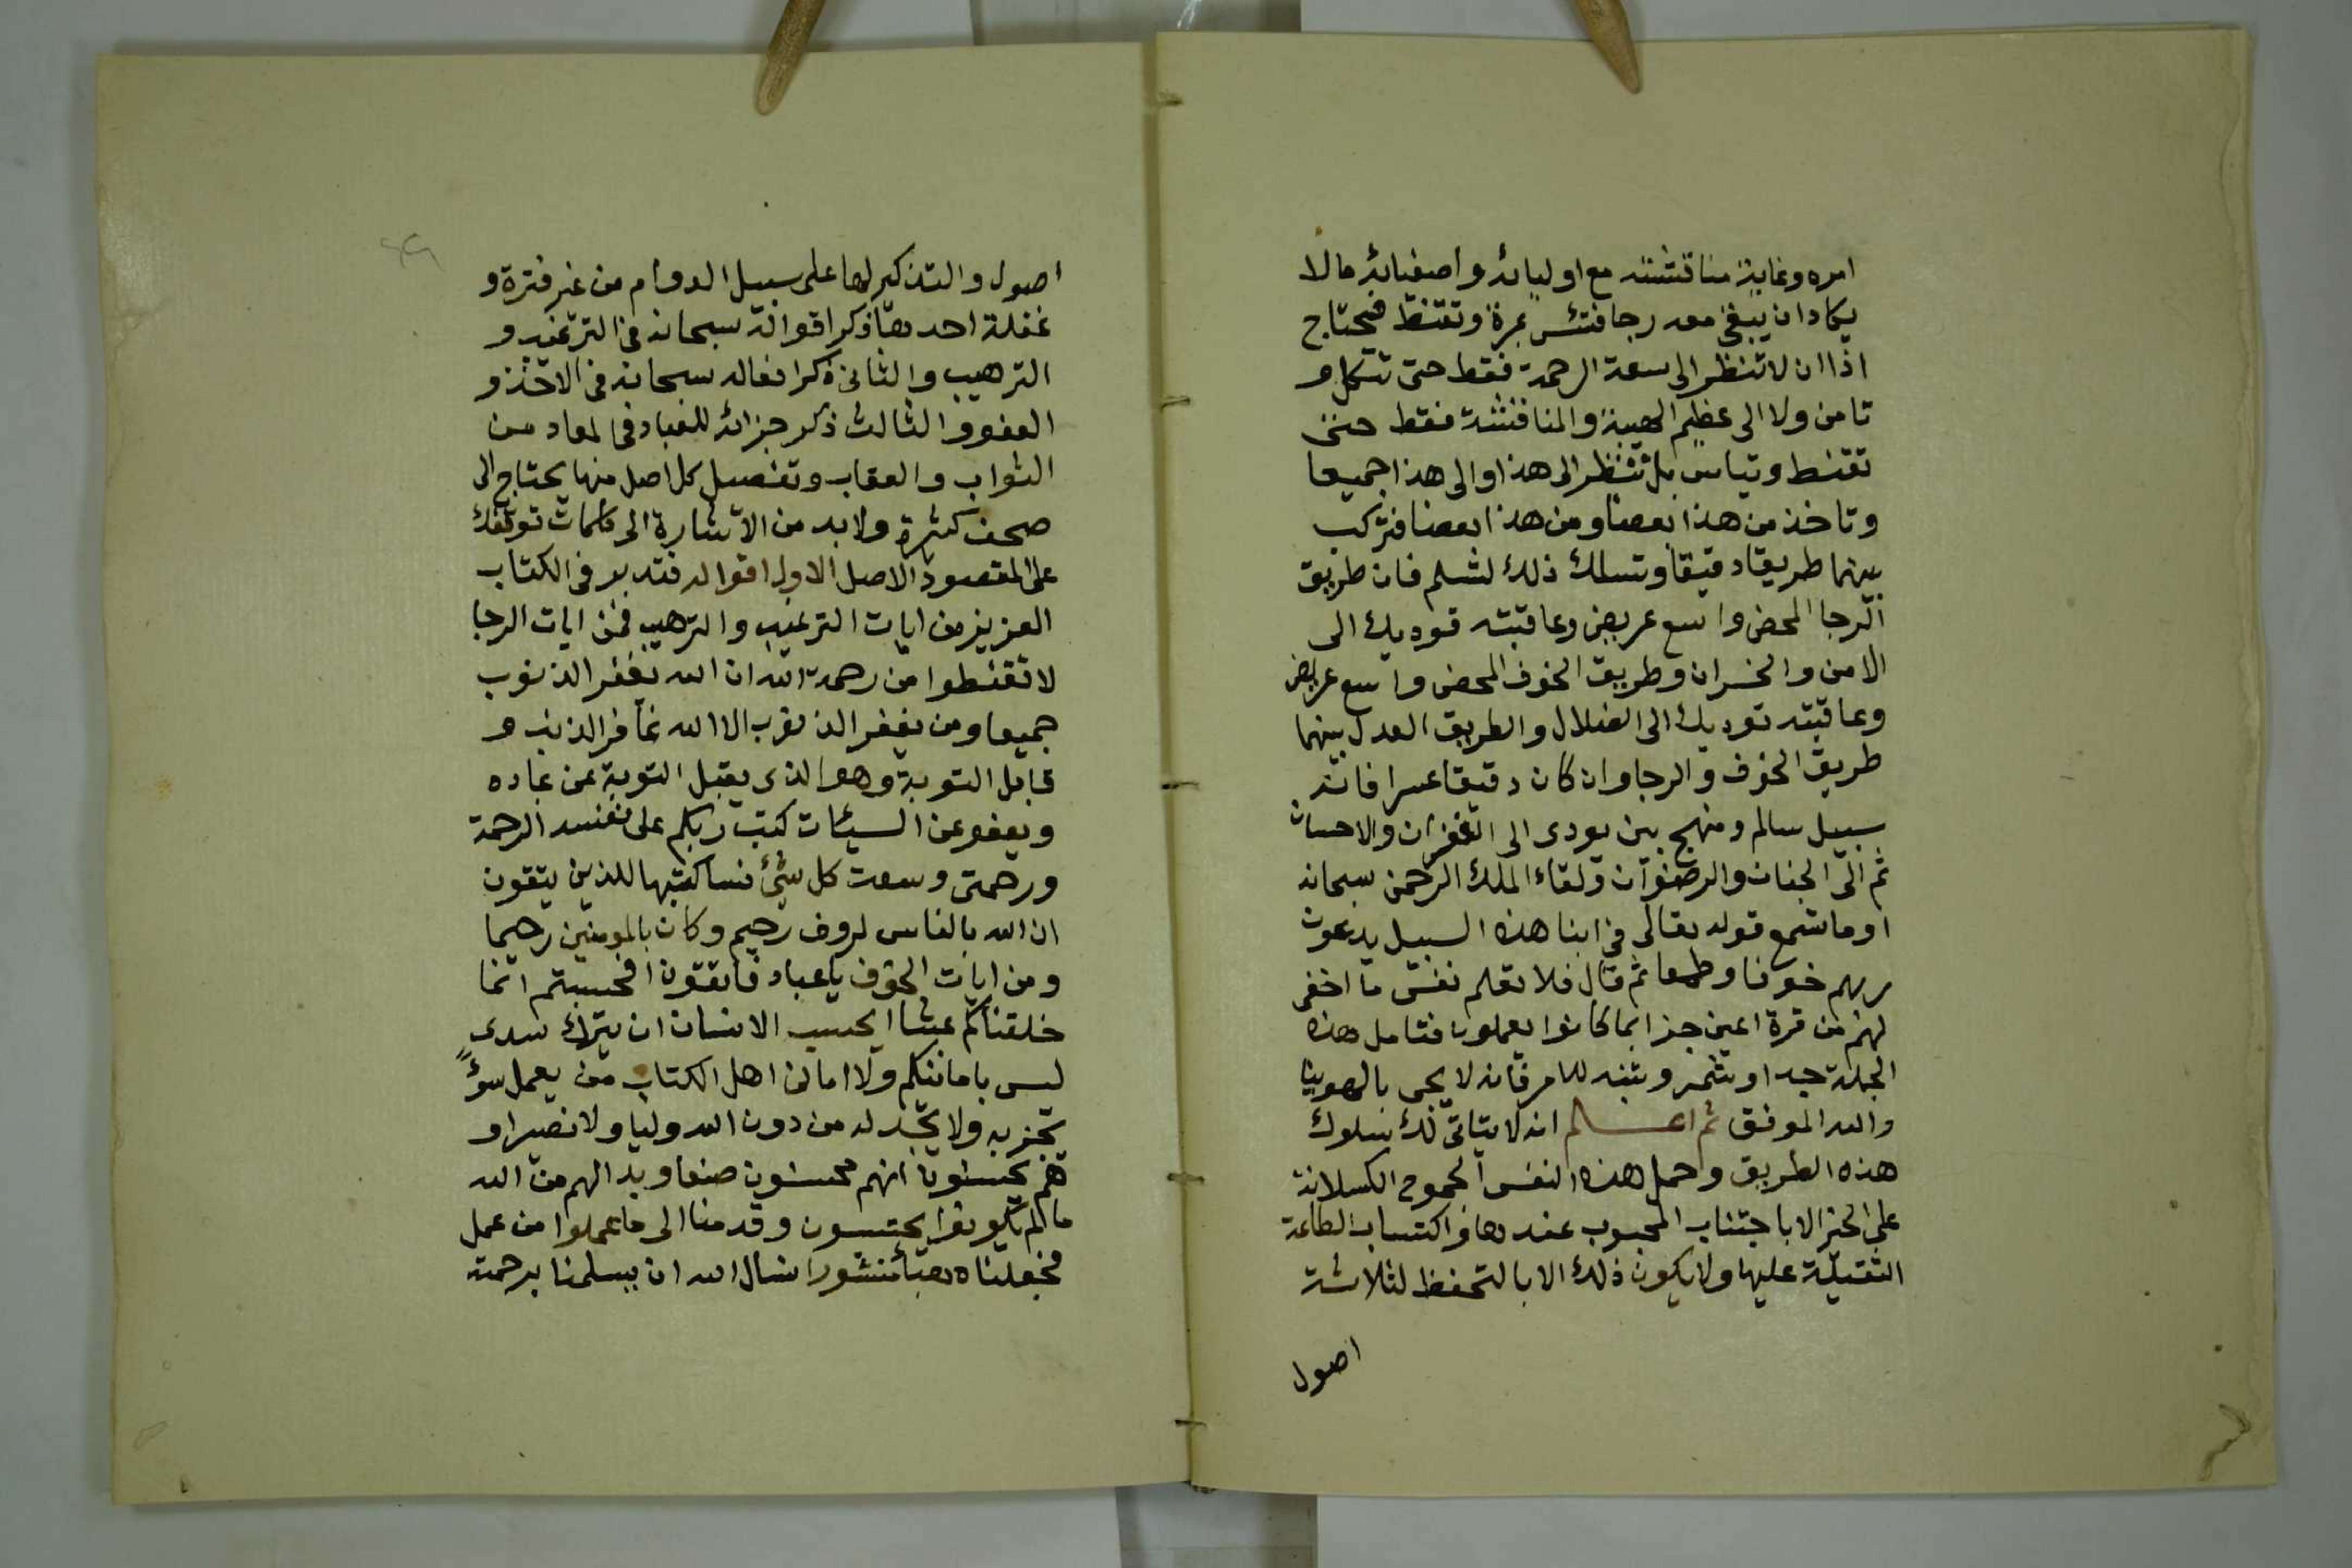 امره وغاية مناقشته مع اوليائه واصفيائه ما لا
يكاد ان يبقى معه رجا فتئس بمرة وتقنط فيحتاج
اذا ان لا تنظر الى سعة الرحمة فقط حتى تتكل و
تامن ولا الى عظيم الهيبة والمناقشة فقط حتى
تقنط وتياس بل تنظر الى هذا والى هذا جميعا
وتاخذ من هذا بعضا ومن هذا بعضا فتركب
بينهما طريقا دقيقا وتسلك ذلك لتسلم فان طريق
الرجا المحض واسع عريض وعاقبته توديك الى
الامن والخسران وطريق الخوف المحض واسع عريض
وعاقبته توديك الى الضلال والطريق العدل بينهما
طريق الخوف والرجا وان كان دقيقا عسرا فانه
سبيل سالم ومنهج بين يودى الى الغفران والاحسان
ثم الى الجنان والرضوان ولقاء الملك الرحمن سبحانه
اوما تسمع قوله تعالى فى ابنا هذه السبيل يدعون
ربهم خوفا وطمعا ثم قال فلا تعلم نفس ما اخفى
لهم من قرة اعين جزا بما كانوا يعملون فتامل هذه
الجملة جدا وتشمر وتنبه للامر فانه لا يجى بالهوينا
والله الموفق ثم اعلم انه لا يتاتى لك سلوك
هذه الطريق وحمل هذه النفس الجموح الكسلانة
على الخير الا باجتناب المحبوب عندها واكتساب الطاعة
الثقيلة عليها ولا يكون ذلك الا بالتحفظ لثلاثة
اصول
اصول والتذكير لها على سبيل الدوام من غير فترة و
غفلة احدها ذكر اقواله سبحانه فى الترغيب و
الترهيب والثانى ذكر افعاله سبحانه فى الاخذ و
العفو والثالث ذكر جزائه للعباد فى المعاد من
الثواب والعقاب وتفصيل كل اصل منها يحتاج الى
صحف كثيرة ولا بد من الاشارة الى كلمات توقفك
على المقصود الاصل الاول اقواله فتدبر فى الكتاب
العزيز من ايات الترغيب والترهيب فمن ايات الرجا
لا تقنطوا من رحمة الله ان الله يغفر الذنوب
جميعا ومن يغفر الذنوب الا الله غافر الذنب و
قابل التوبة وهو الذى يقبل التوبة عن عباده
ويعفو عن السيئات كتب ربكم على نفسه الرحمة
ورحمتى وسعت كل شئ فساكتبها للذين يتقون
ان الله بالناس لروف رحيم وكان بالمومنين رحيما
ومن ايات الخوف يا عباد فاتقون افحسبتم انما
خلقناكم عبثا ايحسب الانسان ان يترك سدى
ليس بامانيكم ولا امانى اهل الكتاب من يعمل سوءً
يجز به ولا يجد له من دون الله وليا ولا نصيرا و
هم يحسبون انهم يحسنون صنعا وبدا لهم من الله
ما لم يكونوا يحتسبون وقدمنا الى ما عملوا من عمل
فجعلناه هبا منثورا نسال الله ان يسلمنا برحمته